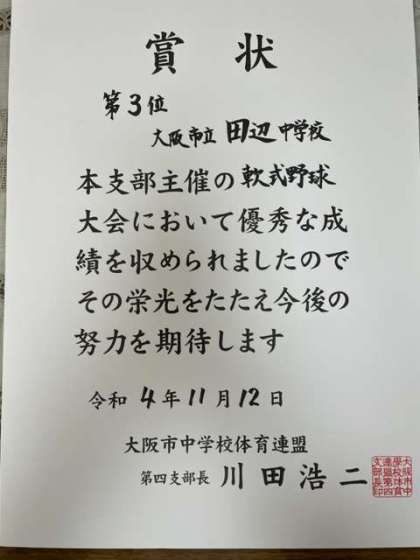 賞状
第3位
大阪市立 田辺 中学校
本支部主催の 軟式野球
大会において優秀な成
績を収められましたので
その栄光をたたえ今後の
努力を期待します
令和 4年11月12日
大阪市中学校体育連盟
第四支部長 川田浩二